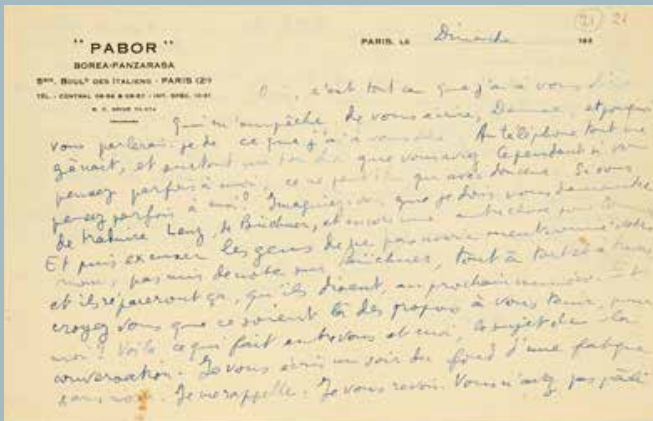 (21) 21
" PABOR "
BOREA-PANZARASA
PARIS, LE Dimanche 193
5BIS, BOULD DES ITALIENS - PARIS (2E)
TÉL. - CENTRAL
Oui, c'est tout ce que j'ai à vous dire
Qui m'empêche de vous écrire, et pourquoi
vous parlerai-je de ce que j'ai à vous dire. Au téléphone tout me
gênait, et surtout que vous aviez. Cependant si vous
pensez parfois à moi, ce ne peut être qu'avec douceur. Si vous
pensez parfois à moi? Imaginez-vous que je dois vous demander
de traduire Lenz, de Büchner, et encore une autre chose
Et puis excuser les gens de ne pas avoir mentionné votre
nom, pas mis de note sur Büchner, tout à tort et à travers
et ils répareront ça, qu'ils disent, au prochain numéro. Et
croyez vous que ce soient là des propos à vous tenir, pour
moi? Voilà ce que fait entre vous et moi, le sujet de la
conversation. Je vous écris un soir du fond d'une fatigue
sans nom. Je me rappelle. Je vous revois. Vous n'avez pas